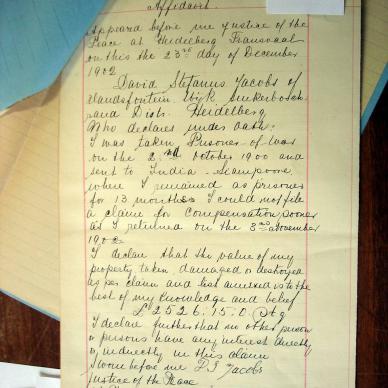 Affidavit
Appeared before me Justice of the
Peace at Heidelberg Transvaal
on this the 23rd day of December
1902
David Stefanus Jacobs of
Elandsfontein Wijk Suikerbosch
and Distr. Heidelberg
Who declares under oath:
I was taken Prisoner of War
on the 2nd October 1900 and
sent to India - Siampoore
where I remained as prisoner
for 13 months I could not file
a claim for Compensation sooner
as I returned on the 3rd November
1902
I declare that the value of my
property taken, damaged or destroyed
as per claim and list annexed is to the
best of my knowledge and belief
£ 2526.15.0. Stg
I declare further that no other person
or persons have any interest directly
or indirectly in this claim
Sworn before me D S Jacobs
Justice of the Peace